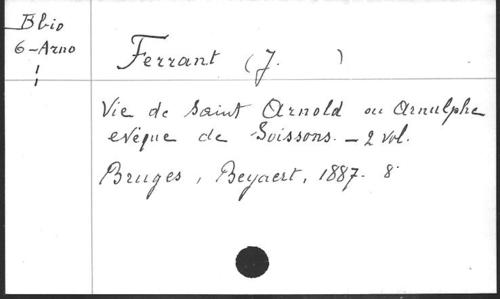 Bbio
6-Arno
Ferrant (J. )
Vie de Saint Arnold ou Arnulphe
evêque de Soissons. - 2 vol.
Bruges, Beyaert, 1887. 8°